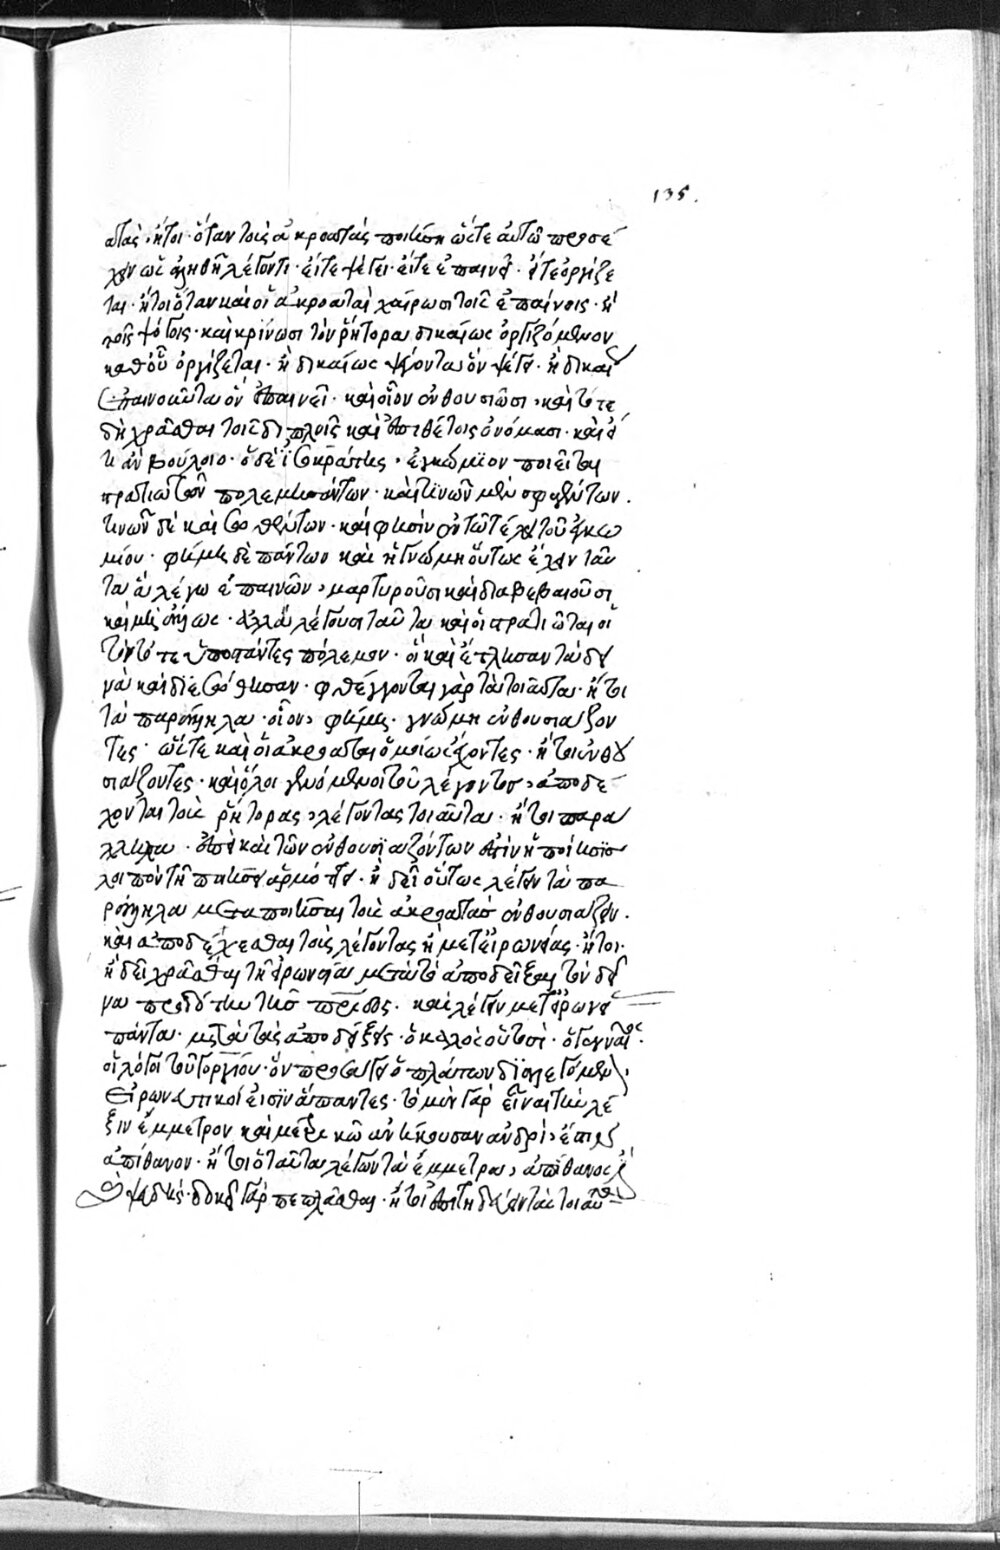 135.
ατὰς, ἤτοι ὅταν τοὺς ἀκροατὰς ποιήση ὥστε αὐτῶ προσέ
χειν ὡς ἀληθῆ λέγοντι· εἴτε ψέγει· εἴτε ἐπαινεῖ· εἴτε ὀργίζε
ται· ἤτοι ὅταν καὶ οἱ ἀκροαταὶ χαίρωσι τοῖς ἐπαίνοις· ἢ
τοῖς ψόγοις· καὶ κρίνωσι τὸν ῥήτορα δικαίως ὀργιζόμενον
καθ' οὗ ὀργίζεται· ἢ δικαίως ψέγοντα ὃν ψέγει· ἢ δικαί
ως ἐπαινοῦντα ὃν ἐπαινεῖ· καὶ οἷον ἐνθουσιῶσι, καὶ τότε
δὴ χρᾶσθαι τοῖς διπλοῖς καὶ ἐπιθέτοις ὀνόμασι· καὶ εἴ
τι ἂν βούλοιο· ὁ δὲ ἰσοκράτης, ἐγκώμιον ποιεῖται
στρατιωτῶν πολεμησάντων· καὶ τινῶν μὲν σφαγέντων.
τινῶν δὲ καὶ σωθέντων· καὶ φησὶν ἐν τῶ τέλει τοῦ ἐγκω
μίου· φήμη δὲ πάντων καὶ ἡ γνώμη οὕτως ἔχειν ταῦ
τα ἃ λέγω ἐπαινῶν, μαρτυροῦσι καὶ διαβεβαιοῦσι
καὶ μνήμη ὡς· ἀλλὰ λέγουσι ταῦτα καὶ οἱ στρατιῶται οἱ
τὸν τότε ὑποστάντες πόλεμον· οἳ καὶ ἔτλησαν τὰ δει
νὰ καὶ διεσώθησαν· φθέγγονται γὰρ τὰ τοιαῦτα· ἤτοι
τὰ παράλληλα· οἷον, φήμη· γνώμη ἐνθουσιάζον
τες· ὥστε καὶ οἱ ἀκροαταὶ ὁμοίως ἔχοντες· ἤτοι ἐνθου
σιάζοντες· καὶ ὅλοι γενόμενοι τοῦ λέγοντος, ἀποδέ
χονται τοὺς ῥήτορας, λέγοντας τοιαῦτα· ἤτοι παρά
λληλα· ἐπεὶ καὶ τῶν ἐνθουσιαζόντων ἐστὶν ἡ ποίησις·
λοιπὸν τῆ ποιήσει ἁρμόττει· ἢ δεῖ οὕτως λέγειν τὰ πα
ράλληλα μετὰ ποιῆσαι τοὺς ἀκροατὰς ἐνθουσιάζειν.
καὶ ἀποδέχεσθαι τοὺς λέγοντας ἢ μετ' εἰρωνείας· ἤτοι·
ἢ δεῖ χρᾶσθαι τῆ εἰρωνεία μετὰ τὸ ἀποδεῖξαι τὸν δεῖ
να προδότην τῆς πατρίδος. καὶ λέγειν μετ' εἰρωνεί
πάντα· μετὰ τὰς ἀποδείξεις· ὁ καλὸς οὑτοσί· ὁ
οἱ λόγοι τοῦ Γοργίου· ὃν προσάγει ὁ πλάτων διαλεγόμενον,
Εἰρωνευτικοί εἰσιν ἅπαντες· τὸ μὲν γὰρ εἶναι τὴν λέ
ξιν ἔμμετρον καὶ
ἀπίθανον· ἤτοι ὁ ταῦτα λέγων τὰ ἔμμετρα, ἀπίθανος
ψευδής· δοκεῖ γὰρ πεπλᾶσθαι· ἤτοι ἐπιτηδεύειν τὰ τοιαῦ